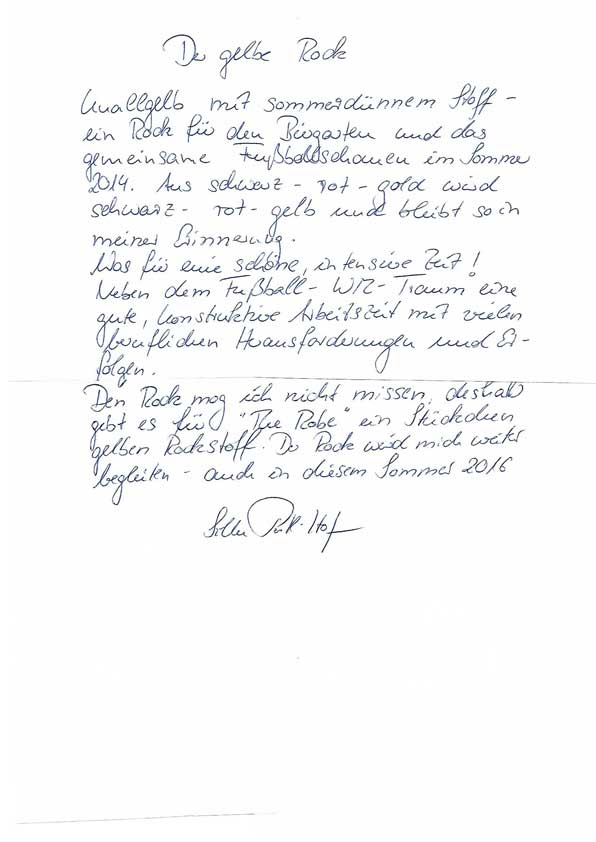 Der gelbe Rock
Knallgelb mit sommerdünnem Stoff -
ein Rock für den Biergarten und das
gemeinsame Fußballschauen im Sommer
2014. Aus schwarz - rot - gold wird
schwarz - rot - gelb und bleibt so in
meiner Erinnerung.
Was für eine schöne, intensive Zeit!
Neben dem Fußball - WM - Traum eine
gute, konstruktive Arbeitszeit mit vielen
beruflichen Herausforderungen und Er-
folgen.
Den Rock mag ich nicht missen, deshalb
gebt es für "The Robe" ein Stückchen
gelben Rockstoff. Der Rock wird mich weiter
begleiten - auch in diesem Sommer 2016